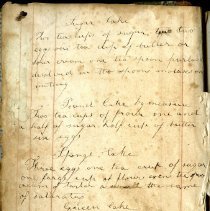 Sugar Cake
two tea cups of sugar, two
eggs one tea cup of butter or
sour cream one tea spoon pearlash
disolved in the cream
nutmeg
Pound Cake by measure
two tea cups of flour one and
a half of sugar half cup of butter
six eggs
Sponge Cake
Three eggs one tea cup of sugar
one large cup of flour even tea spoon
cream of tartar a small the same
of salaratus
Queen Cake